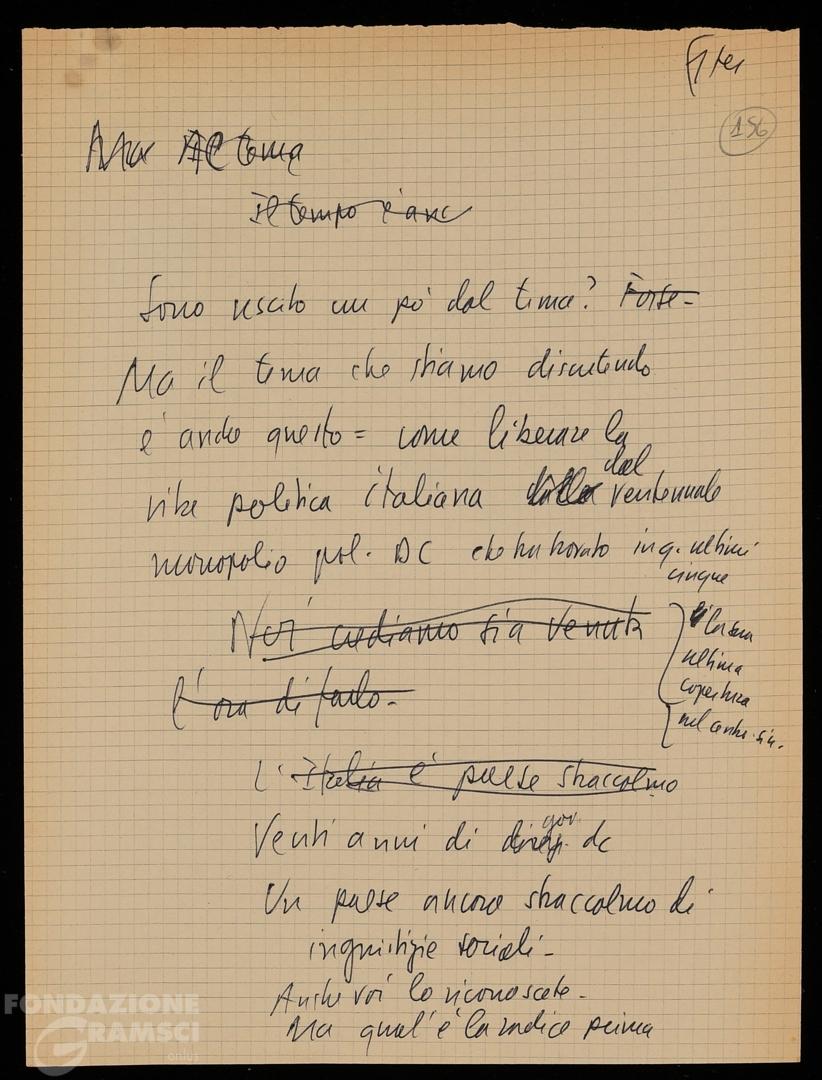 156
Ma Al tema
Il tempo è anc
Sono uscito un pò dal tema? Forse -
Ma il tema che stiamo discutendo
e' anche questo = come liberare la
vita politica italiana dalla dal ventennale
monopolio pol. DC che ha trovato in q. ultimi
cinque
la sua
ultima
copertura
nel centro-sin.
Noi crediamo sia venuta
l'ora di farlo -
L'Italia è paese straccolmo
Venti anni di gov. dc
Un paese ancora straccolmo di
ingiustizie sociali -
Anche voi lo riconoscete -
Ma qual'è la radice prima
FONDAZIONE
GRAMSCI
onlus